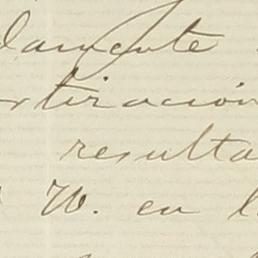 damente
stiración
resulta
W. en l